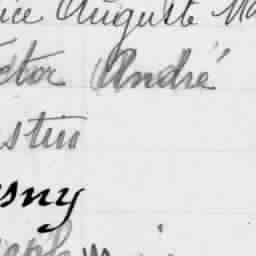 ice Auguste Ma
ctor André
stin
sny
eph